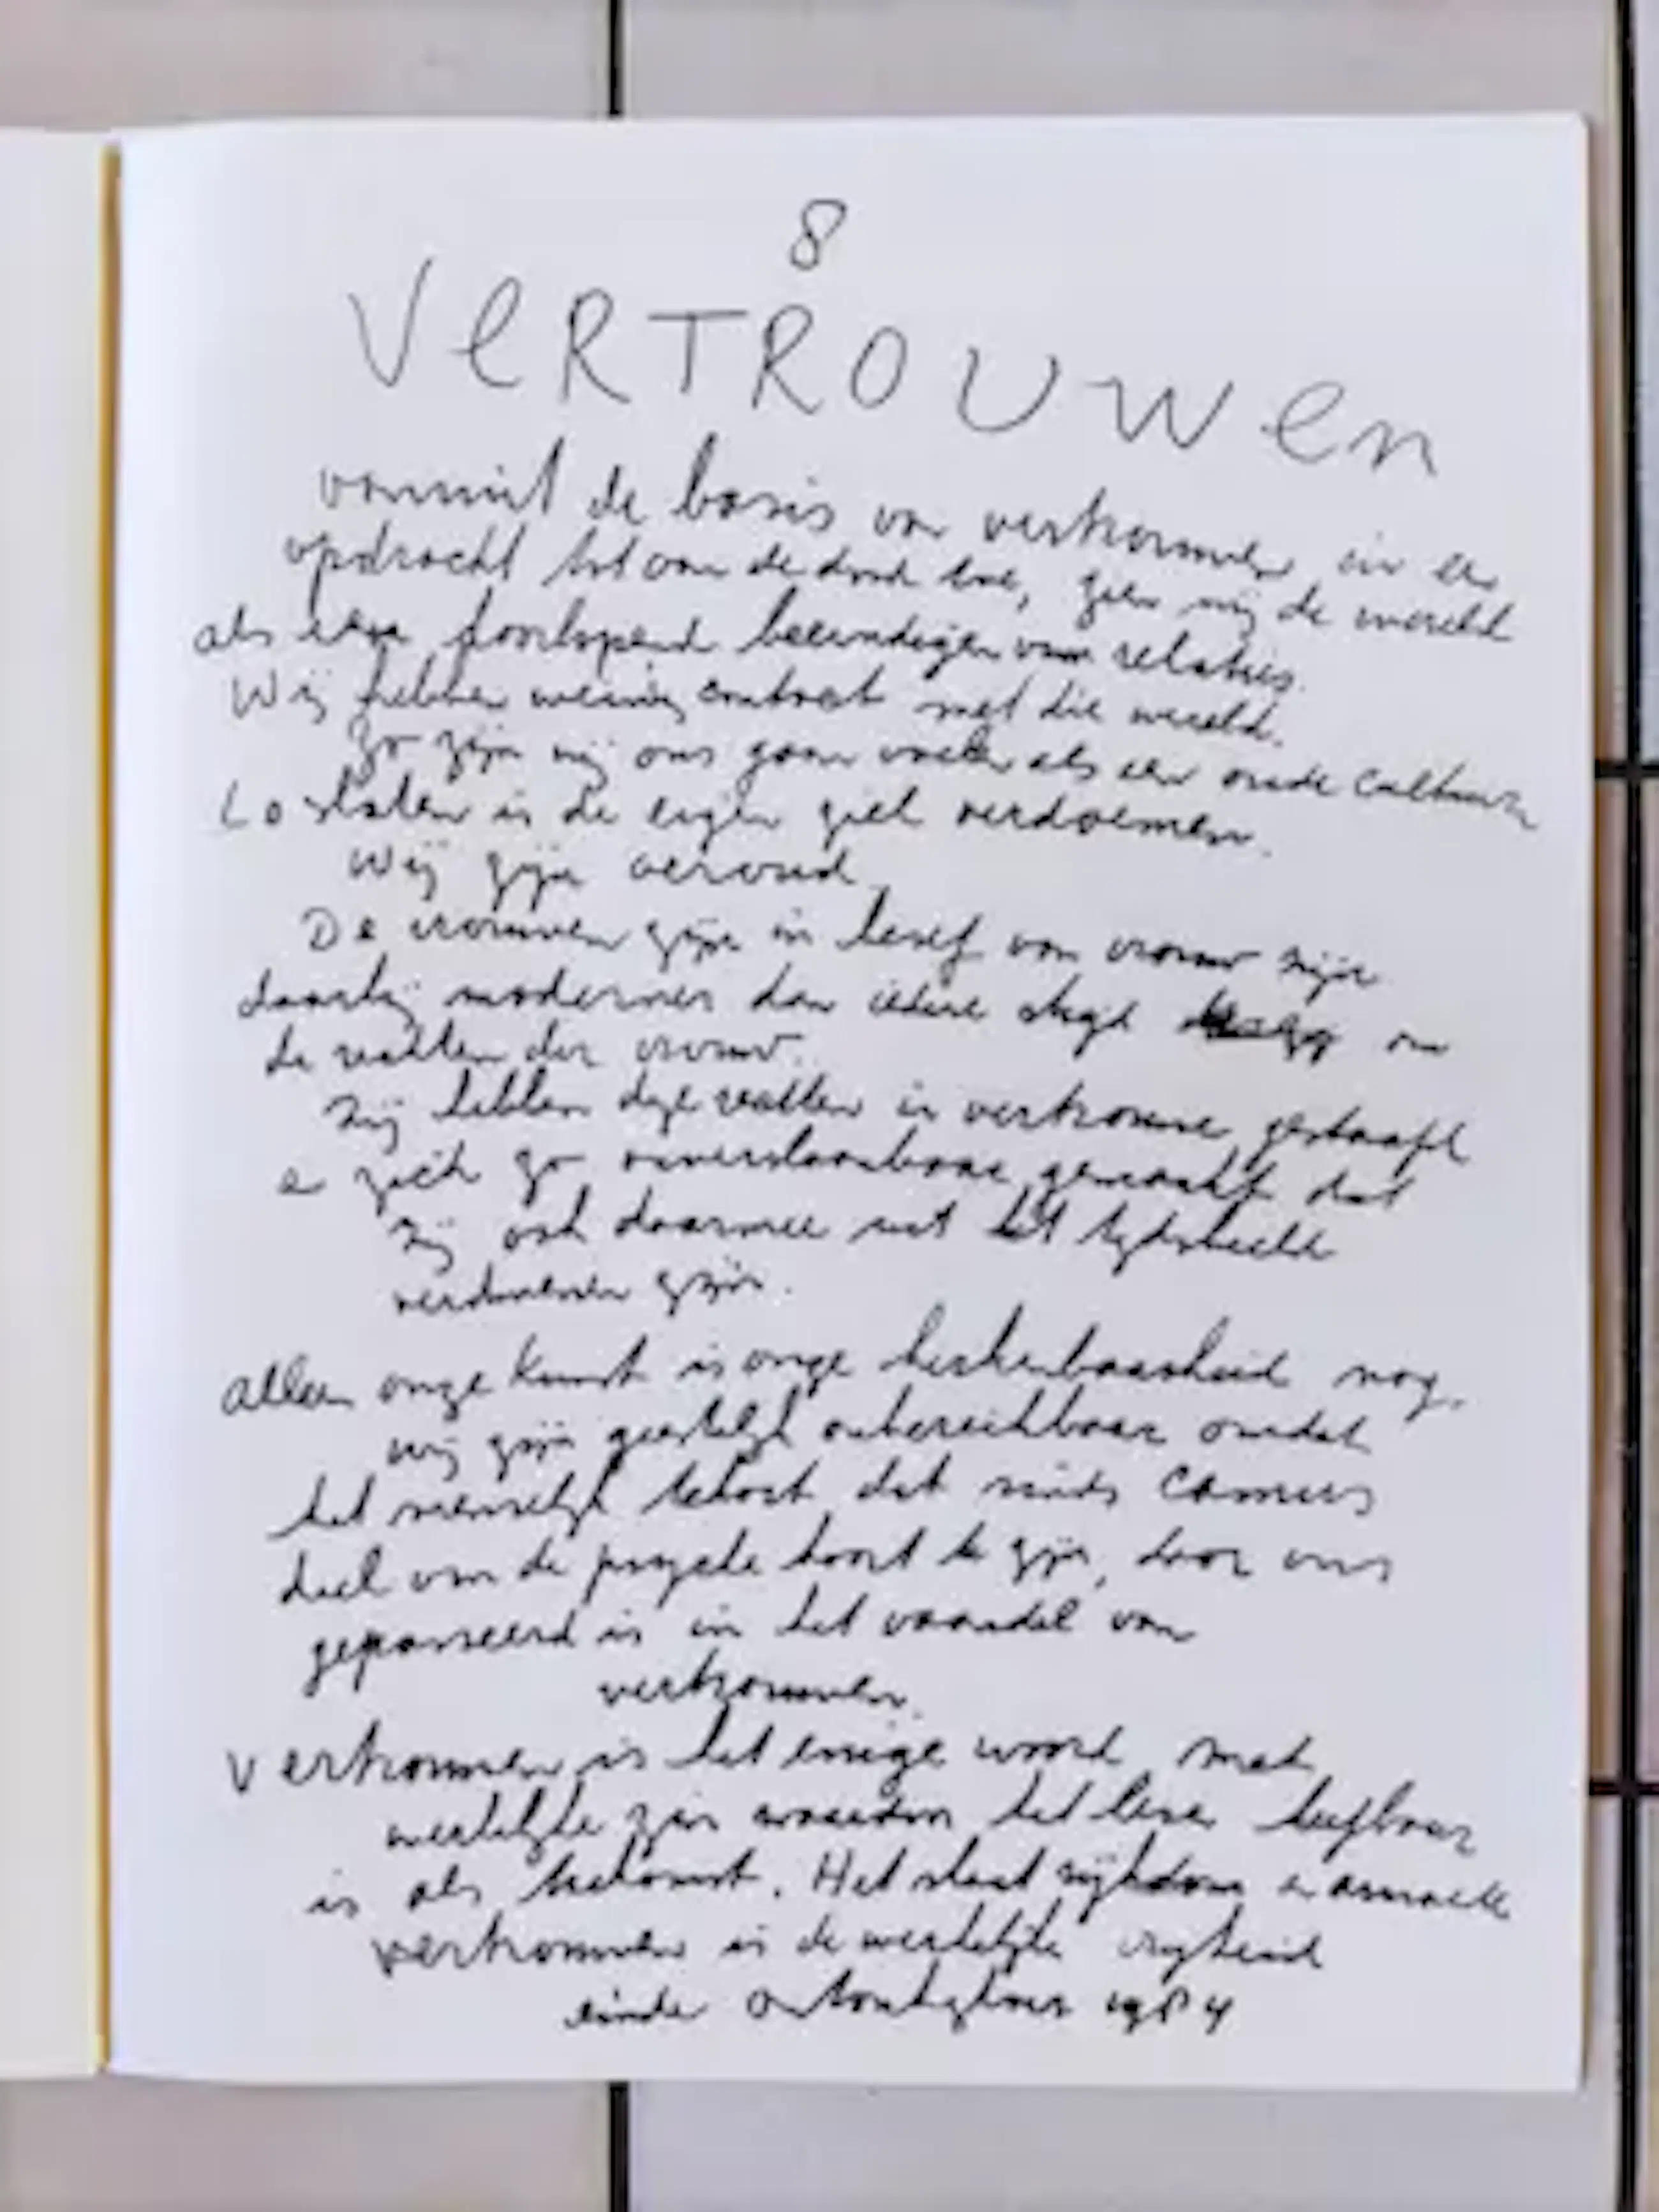 8
VERTROUWEN
vanuit de basis van vertrouwen in een
opdracht tot aan de dood toe, zien wij de wereld
als een doorlopend beeindigen van relaties.
Wij hebben weinig contact met die wereld.
Zo zijn wij ons gaan voelen als een oude cultuur
Loslaten is de eigen ziel verdoemen.
Wij zijn oeroud
De vrouwen zijn in besef van vrouw zijn
daarbij moderner dan iedere om
de rechten der vrouw.
Zij hebben deze rechten in vertrouwen gestaafd
en zich zo onverstaanbaar gemaakt dat
zij ook daarmee uit het tijdsbeeld
verdwenen zijn.
Alleen onze kunst is onze herkenbaarheid nog.
wij zijn geestelijk onbereikbaar omdat
het menselijk tekort dat sinds Camus
deel van de psyche hoort te zijn, door ons
gepasseerd is in het vaandel van
vertrouwen.
Vertrouwen is het enige woord met
werkelijke zin waardoor het leven leefbaar
is als toekomst. Het staat rijkdom en armoede
vertrouwen is de werkelijke vrijheid
einde 1984